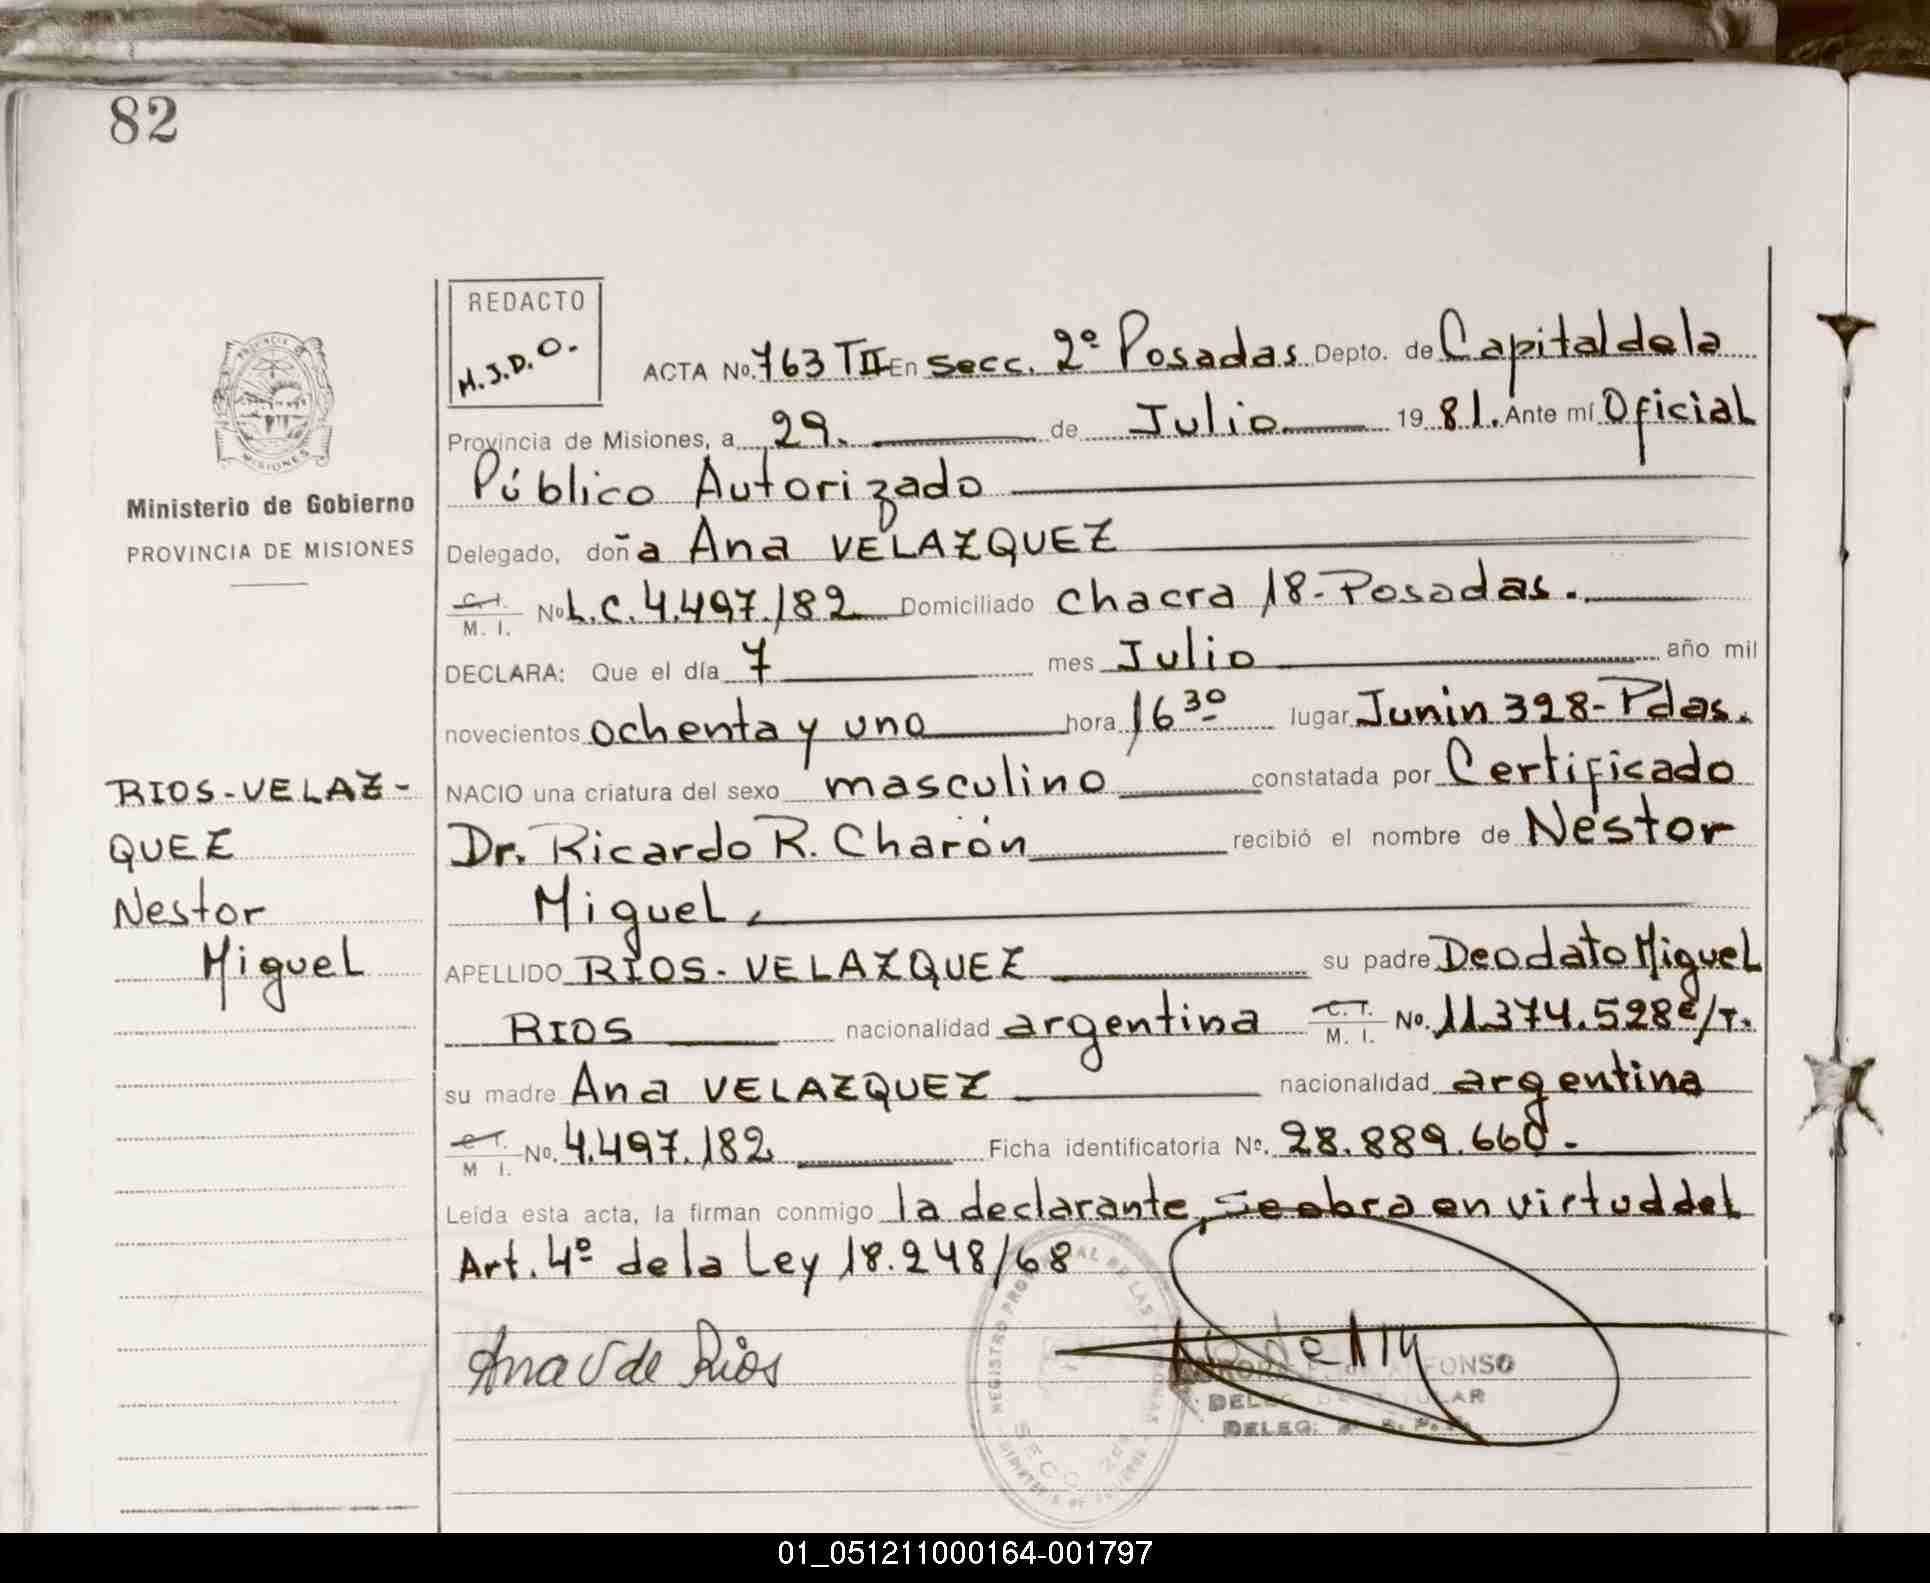 82
REDACTO
M.J.D.O.
PROVINCIA DE
MISIONES
Ministerio de Gobierno
PROVINCIA DE MISIONES
ACTA No. 763 TII En Secc. 2º Posadas Depto. de Capital de la
Provincia de Misiones, a 29. de Julio 1981. Ante mí Oficial
Público Autorizado
Delegado, doña Ana VELAZQUEZ
C. I. / M. I. No L.C. 4.497.182 Domiciliado chacra 18-Posadas.
DECLARA: Que el día 7 mes Julio año mil
novecientos ochenta y uno hora 16 30 lugar Junin 328-Pdas.
NACIO una criatura del sexo masculino constatada por Certificado
Dr. Ricardo R. Charón recibió el nombre de Nestor
Miguel
APELLIDO RIOS-VELAZQUEZ su padre Deodato Miguel
RIOS nacionalidad argentina C. I. / M. I. No. 11.374.528 e/T.
su madre Ana VELAZQUEZ nacionalidad argentina
C. I. / M. I. No. 4.497.182 Ficha identificatoria Nº. 28.889.660.
Leída esta acta, la firman conmigo la declarante, se obra en virtud del
Art. 4º de la Ley 18.248/68
RIOS-VELAZ-
QUEZ
Nestor
Miguel
Ana V de Rios
01_051211000164-001797